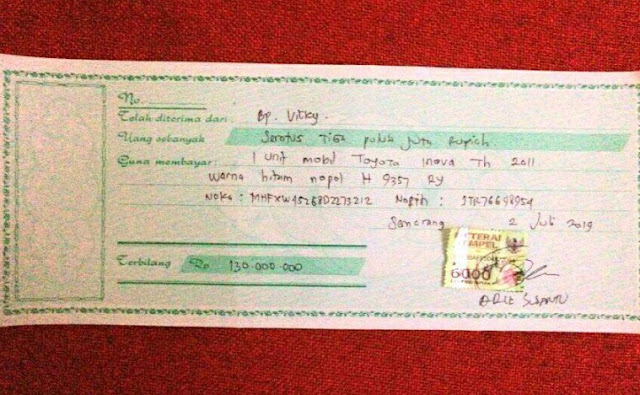 No.
Telah diterima dari : Bp. Vitky.
Uang sebanyak Seratus Tiga puluh juta Rupiah
Guna membayar: 1 Unit mobil Toyota Inova Th 2011
Warna hitam nopol H 9357 RY
Noka : Nopin :
Semarang 2 Juli 2019
TERAI
MPEL
6000
Terbilang Rp 130.000.000